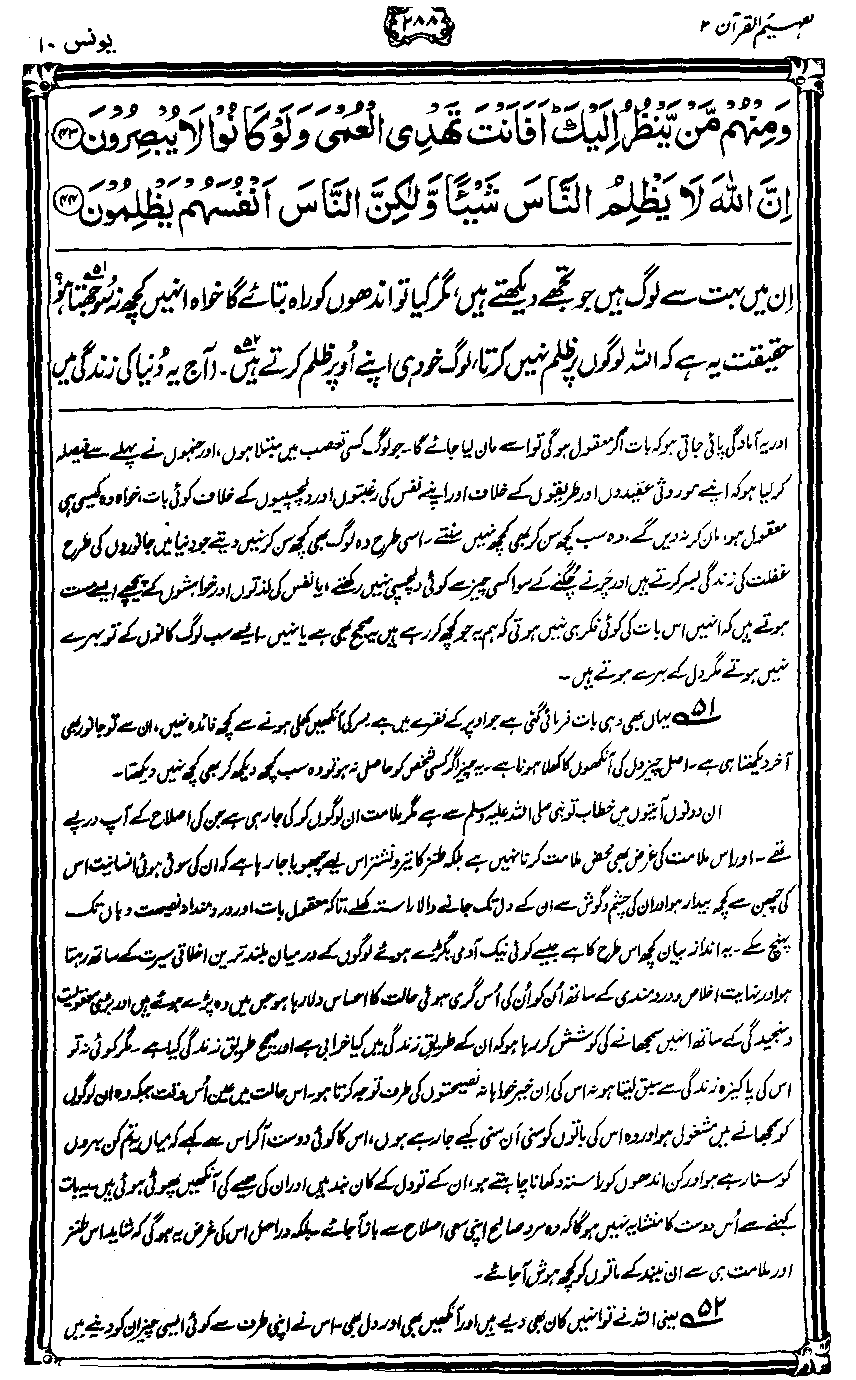 تفہیم القرآن ۲
۲۸۸
یونس ۱۰
وَمِنْهُمْ مَّنْ يَّنْظُرُ اِلَيْكَ ؕ اَفَاَنْتَ تَهْدِى الْعُمْىَ وَلَوْ كَانُوْا لَا يُبْصِرُوْنَ ﴿۴۳﴾
اِنَّ اللّٰهَ لَا يَظْلِمُ النَّاسَ شَيْـًٔا وَّلٰكِنَّ النَّاسَ اَنْفُسَهُمْ يَظْلِمُوْنَ ﴿۴۴﴾
اِن میں بہت سے لوگ ہیں جو تجھے دیکھتے ہیں، مگر کیا تو اندھوں کو راہ بتائے گا خواہ انہیں کچھ نہ سُوجھتا ہو؟ ۵۱
حقیقت یہ ہے کہ اللہ لوگوں پر ظلم نہیں کرتا، لوگ خود ہی اپنے اُوپر ظلم کرتے ہیں۔ ۵۲ (آج یہ دُنیا کی زندگی میں
اور یہ آمادگی پائی جاتی ہو کہ بات اگر معقول ہوگی تو اسے مان لیا جائے گا۔ جو لوگ کسی تعصب میں مبتلا ہوں، اور جنہوں نے پہلے سے فیصلہ
کر لیا ہو کہ اپنے موروثی عقیدوں اور طریقوں کے خلاف اور اپنے نفس کی رغبتوں اور دلچسپیوں کے خلاف کوئی بات، خواہ وہ کیسی ہی
معقول ہو، مان کر نہ دیں گے، وہ سب کچھ سن کر بھی کچھ نہیں سنتے۔ اسی طرح وہ لوگ بھی کچھ سن کر نہیں دیتے جو دنیا میں جانوروں کی طرح
غفلت کی زندگی بسر کرتے ہیں اور چرنے چگنے کے سوا کسی چیز سے کوئی دلچسپی نہیں رکھتے، یا نفس کی لذتوں اور خواہشوں کے پیچھے ایسے مست
ہوتے ہیں کہ انہیں اس بات کی کوئی فکر ہی نہیں ہوتی کہ ہم یہ جو کچھ کر رہے ہیں یہ صحیح بھی ہے یا نہیں۔ ایسے سب لوگ کانوں کے تو بہرے
نہیں ہوتے مگر دل کے بہرے ہوتے ہیں۔
۵۱ یہاں بھی وہی بات فرمائی گئی ہے جو اوپر کے فقرے میں ہے۔ سر کی آنکھیں کھلی ہونے سے کچھ فائدہ نہیں، ان سے تو جانور بھی
آخر دیکھتا ہی ہے۔ اصل چیز دل کی آنکھوں کا کھلا ہونا ہے۔ یہ چیز اگر کسی شخص کو حاصل نہ ہو تو وہ سب کچھ دیکھ کر بھی کچھ نہیں دیکھتا۔
ان دونوں آیتوں میں خطاب تو نبی صلی اللہ علیہ وسلم سے ہے مگر ملامت ان لوگوں کو کی جا رہی ہے جن کی اصلاح کے آپ درپے
تھے۔ اور اس ملامت کی غرض بھی محض ملامت کرنا نہیں ہے بلکہ طنز کا تیر و نشتر اس لیے چبھویا جا رہا ہے کہ ان کی سوئی ہوئی انسانیت اس
کی چبھن سے کچھ بیدار ہو اور ان کی چشم و گوش سے ان کے دل تک جانے والا راستہ کھلے، تاکہ معقول بات اور دردمندانہ نصیحت وہاں تک
پہنچ سکے۔ یہ انداز بیان کچھ اس طرح کا ہے جیسے کوئی نیک آدمی بگڑے ہوئے لوگوں کے درمیان بلند ترین اخلاقی سیرت کے ساتھ رہتا
ہو اور نہایت اخلاص و دردمندی کے ساتھ اُن کو اُن کی اُس گری ہوئی حالت کا احساس دلا رہا ہو جس میں وہ پڑے ہوئے ہیں اور بڑی معقولیت
و سنجیدگی کے ساتھ انہیں سمجھانے کی کوشش کر رہا ہو کہ ان کے طریق زندگی میں کیا خرابی ہے اور صحیح طریق زندگی کیا ہے۔ مگر کوئی نہ تو
اس کی پاکیزہ زندگی سے سبق لیتا ہو نہ اس کی ان خیر خواہانہ نصیحتوں کی طرف توجہ کرتا ہو۔ اس حالت میں عین اُس وقت جبکہ وہ ان لوگوں
کو سمجھانے میں مشغول ہو اور وہ اس کی باتوں کو سنی اَن سنی کیے جا رہے ہوں، اس کا کوئی دوست آ کر اس سے کہے کہ میاں یہ تم کن بہروں
کو سنا رہے ہو اور کن اندھوں کو راستہ دکھانا چاہتے ہو، ان کے تو دل کے کان بند ہیں اور ان کی ہیے کی آنکھیں پھوٹی ہوئی ہیں۔ یہ بات
کہنے سے اُس دوست کا منشا یہ نہیں ہوگا کہ وہ مرد صالح اپنی سعی اصلاح سے باز آ جائے۔ بلکہ دراصل اس کی غرض یہ ہوگی کہ شاید اس طنز
اور ملامت ہی سے ان نیند کے ماتوں کو کچھ ہوش آ جائے۔
۵۲ یعنی اللہ نے تو انہیں کان بھی دیے ہیں اور آنکھیں بھی اور دل بھی۔ اس نے اپنی طرف سے کوئی ایسی چیز ان کو دینے میں